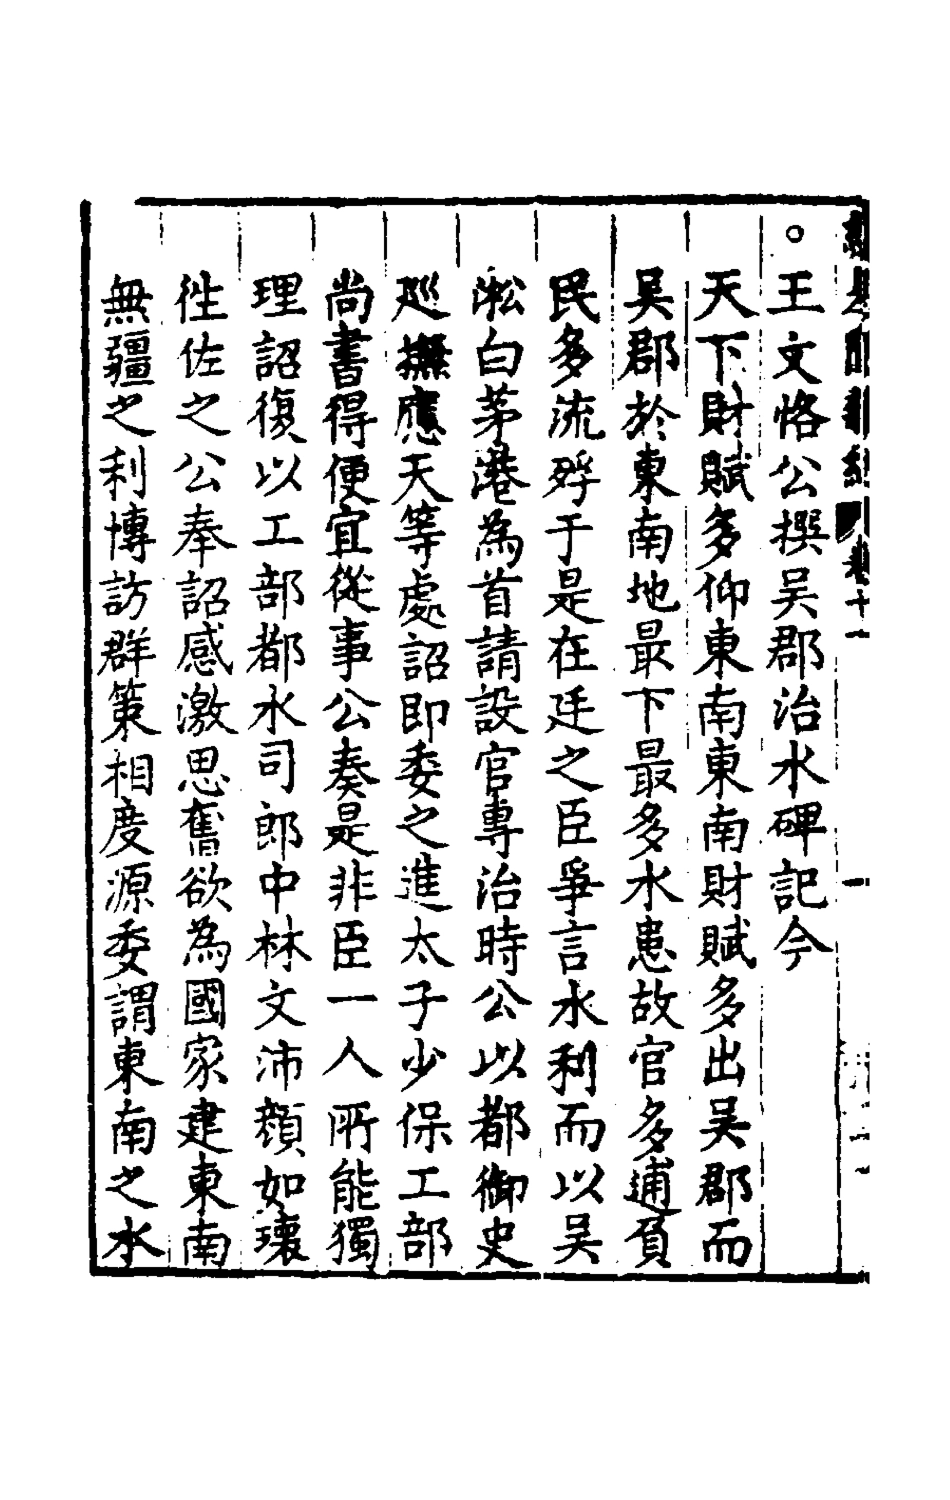 ○王文恪公撰吴郡治水碑記今
天下財賦多仰東南東南財賦多出吴郡而
吴郡於東南地最下最多水患故官多逋負
民多流殍于是在廷之臣爭言水利而以吴
淞白茅港為首請設官專治時公以都御史
廵撫應天等處詔即委之進太子少保工部
尚書得便宜從事公奏是非臣一人所能獨
理詔復以工部都水司郎中林文沛顔如瓌
徃佐之公奉詔感激思奮欲為國家建東南
無疆之利博訪群策相度源委謂東南之水
卷十一